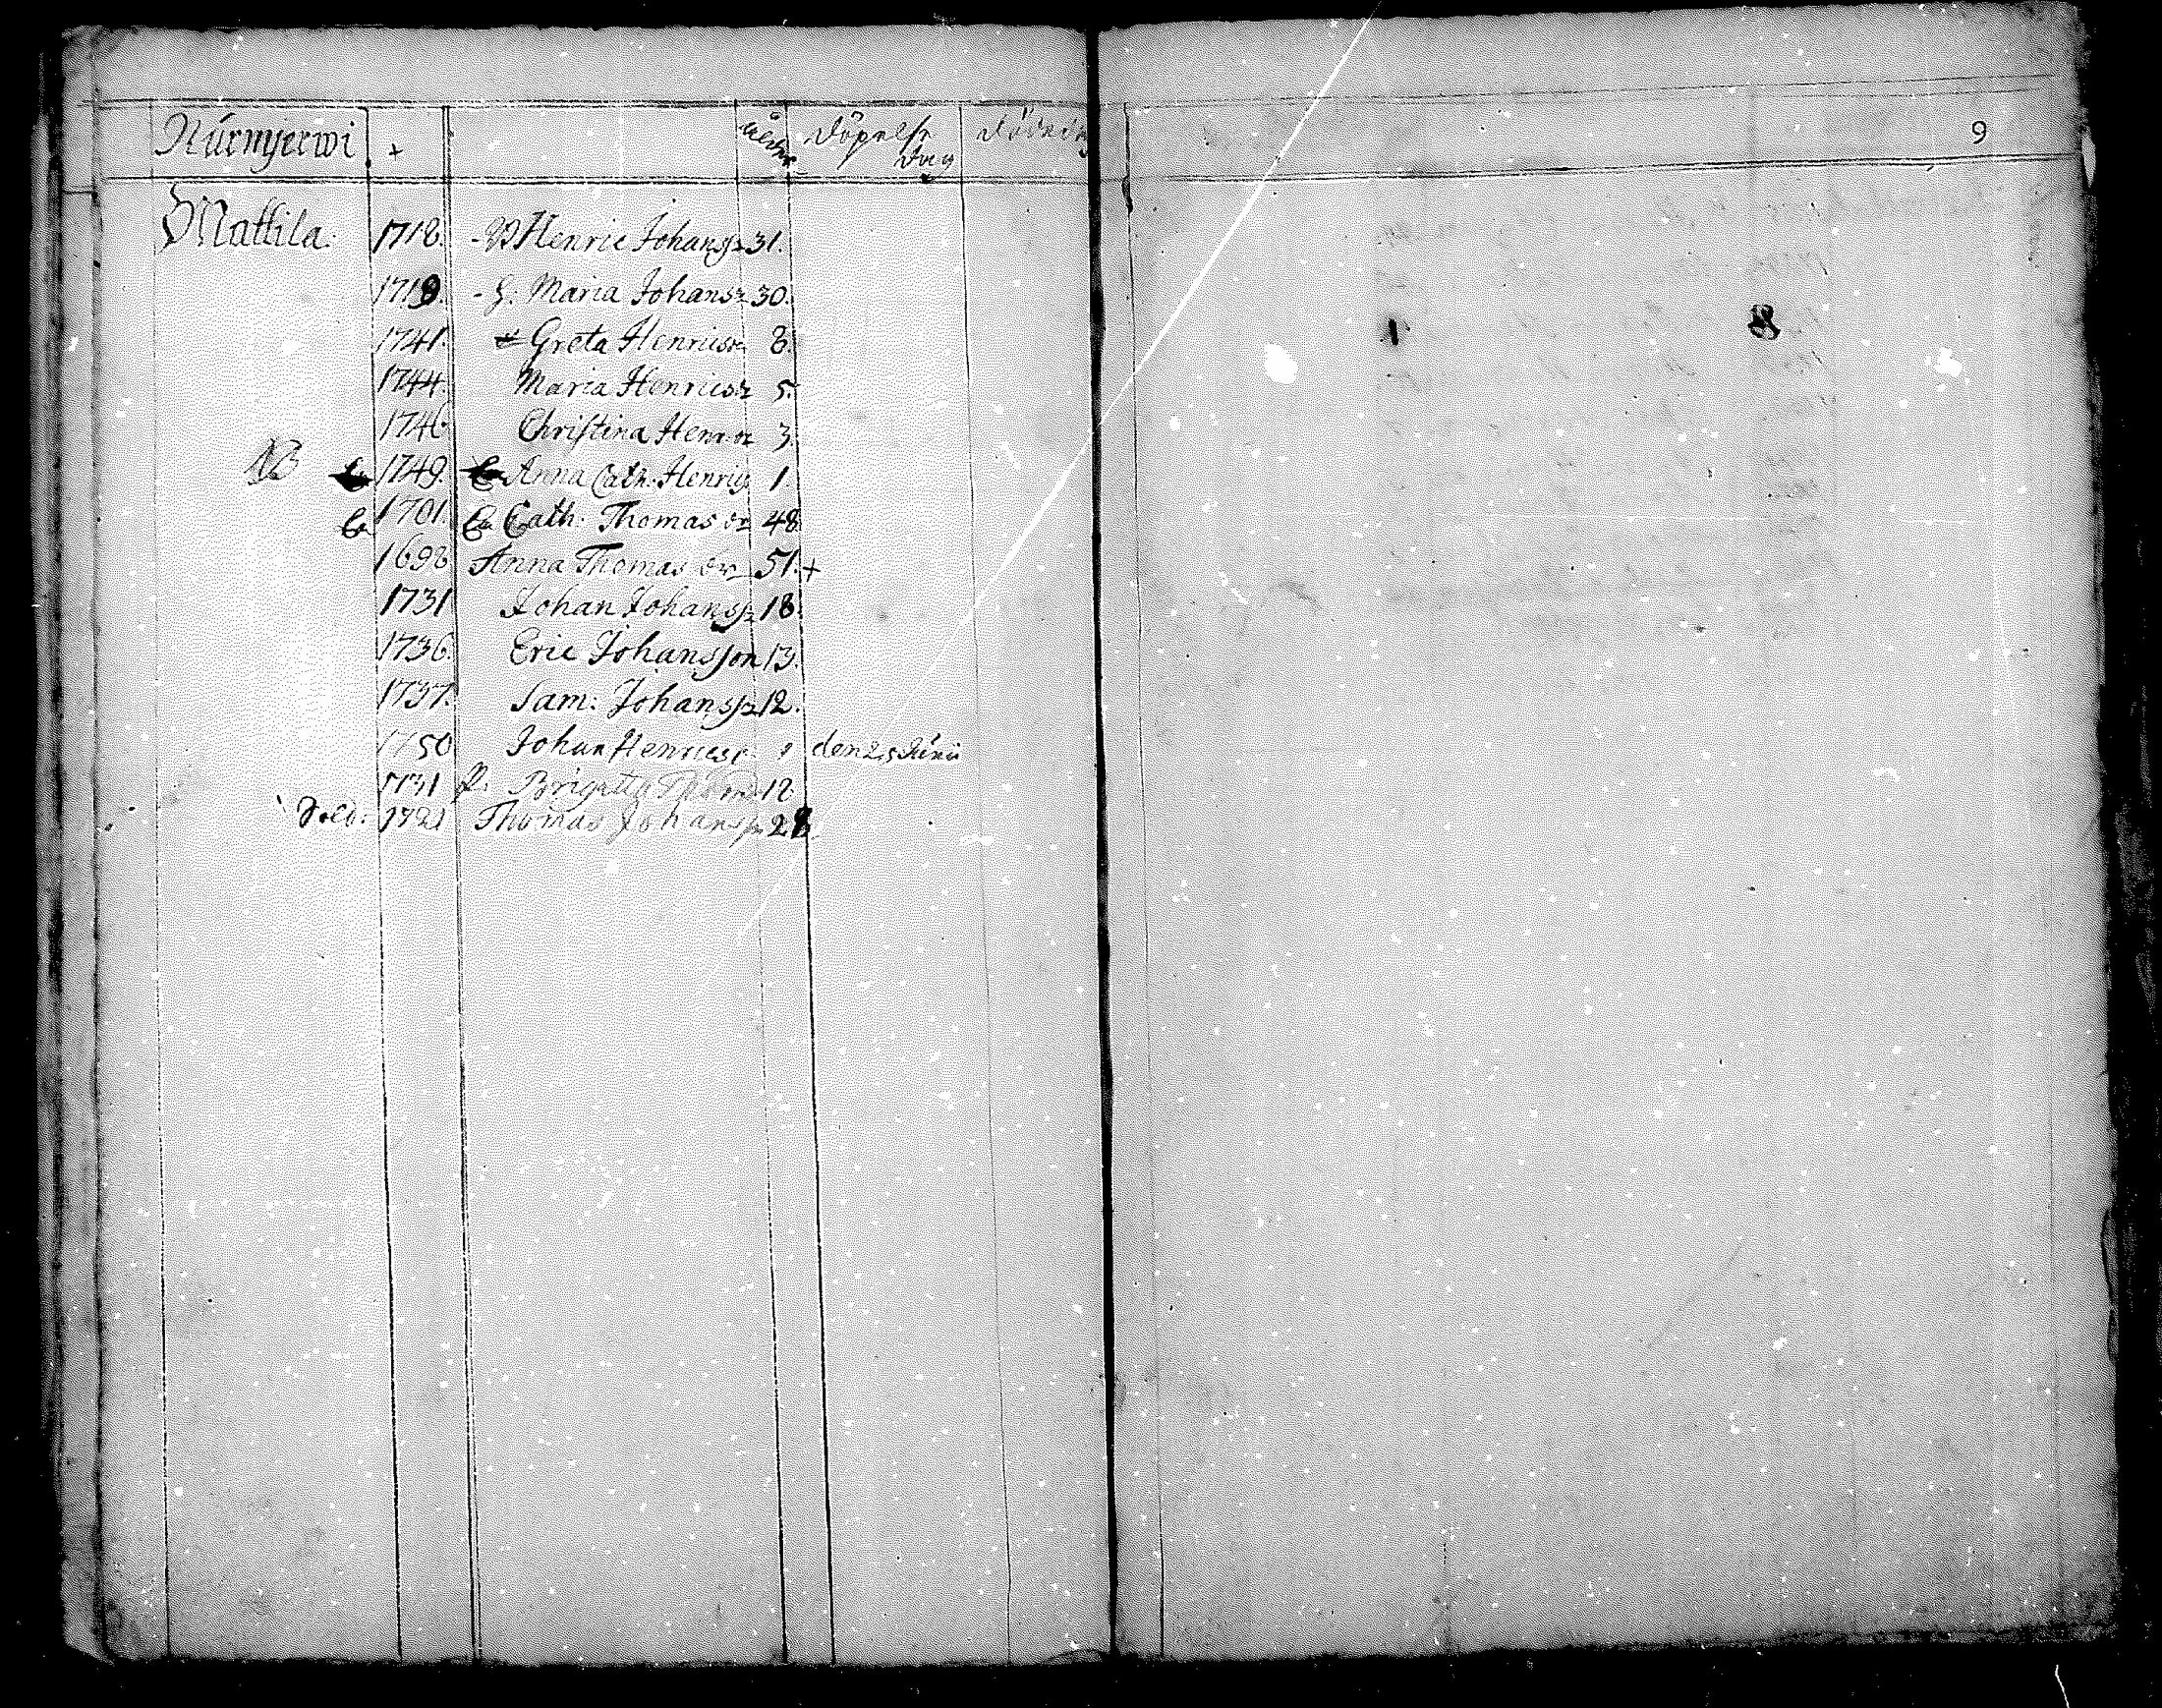 Nurmjerwi + Ålder Döpelse dag Dödedag 9
Mattila. 1718. - B Henric Johanss: 31.
1719. - H: Maria Johansr 30.
1741. Greta Henricsr 8.
1744. Maria Henricsr 5.
1746 Christina Henr or 3.
NB 1749. Anna Cath: Henrics 1.
1701. Cath: Thomas or 48
1698 Anna Thomas or 51. +
1731 Johan Johanss: 18.
1736. Eric Johansson 13.
1737. Sam: Johanss: 12.
1750 Johan Henrics den 25 Junii
Brigetta 12.
Sold: 1721 Thomas Johanss 28